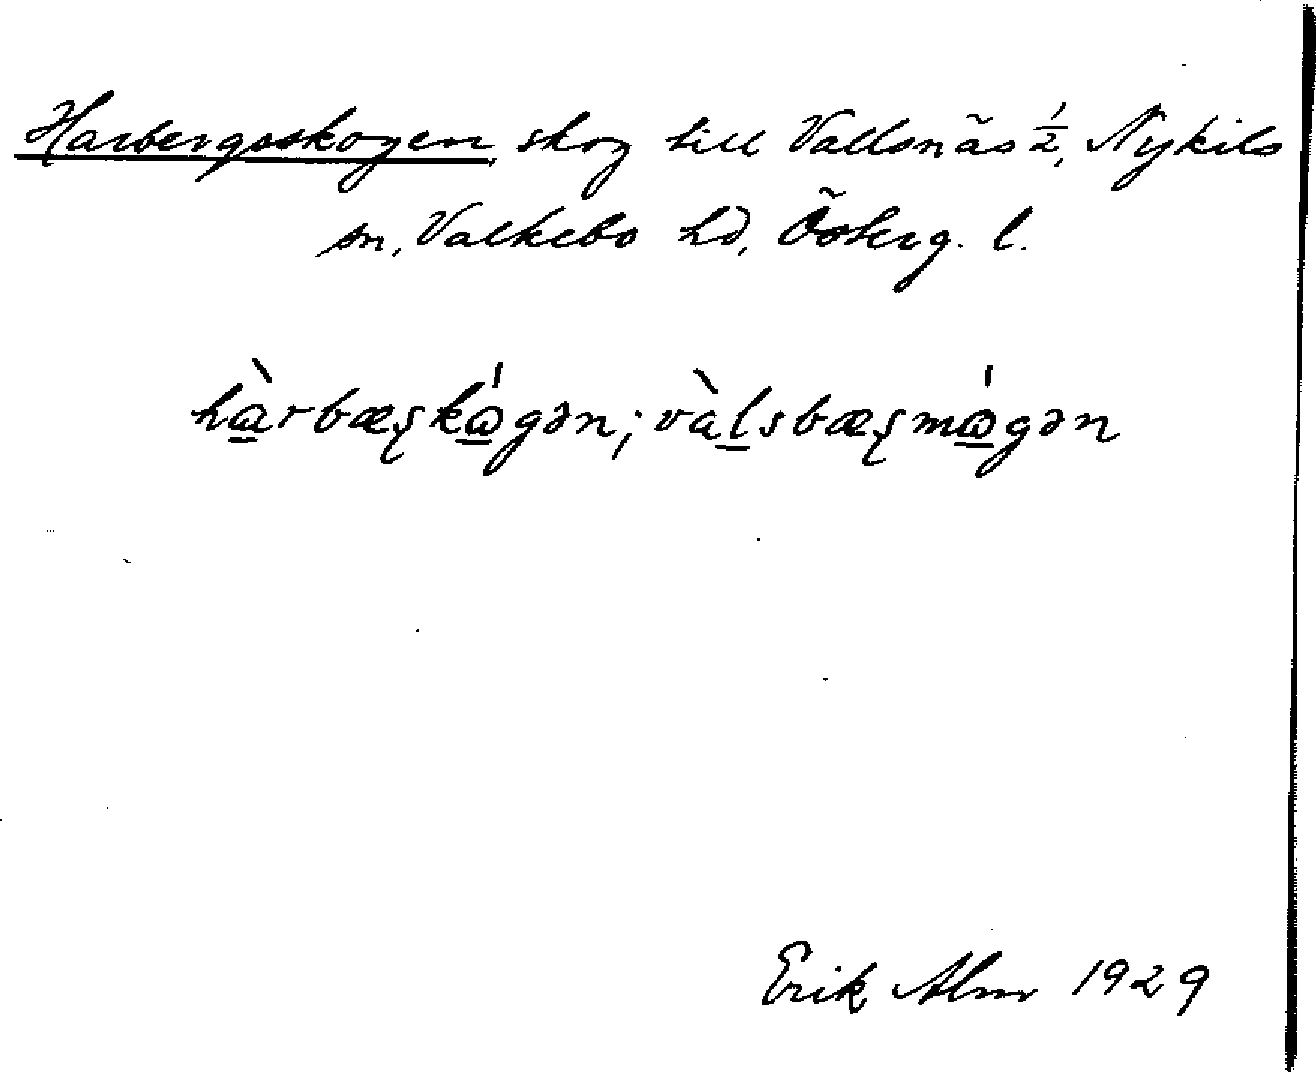 Harbergsskogen, skog till Vallsnäs 1/2, Nykils
sn, Valkebo hd, Österg. l.
hàrbæʂkɷ́gən; vàlsbæʂmɷ́gən
Erik Alm 1929